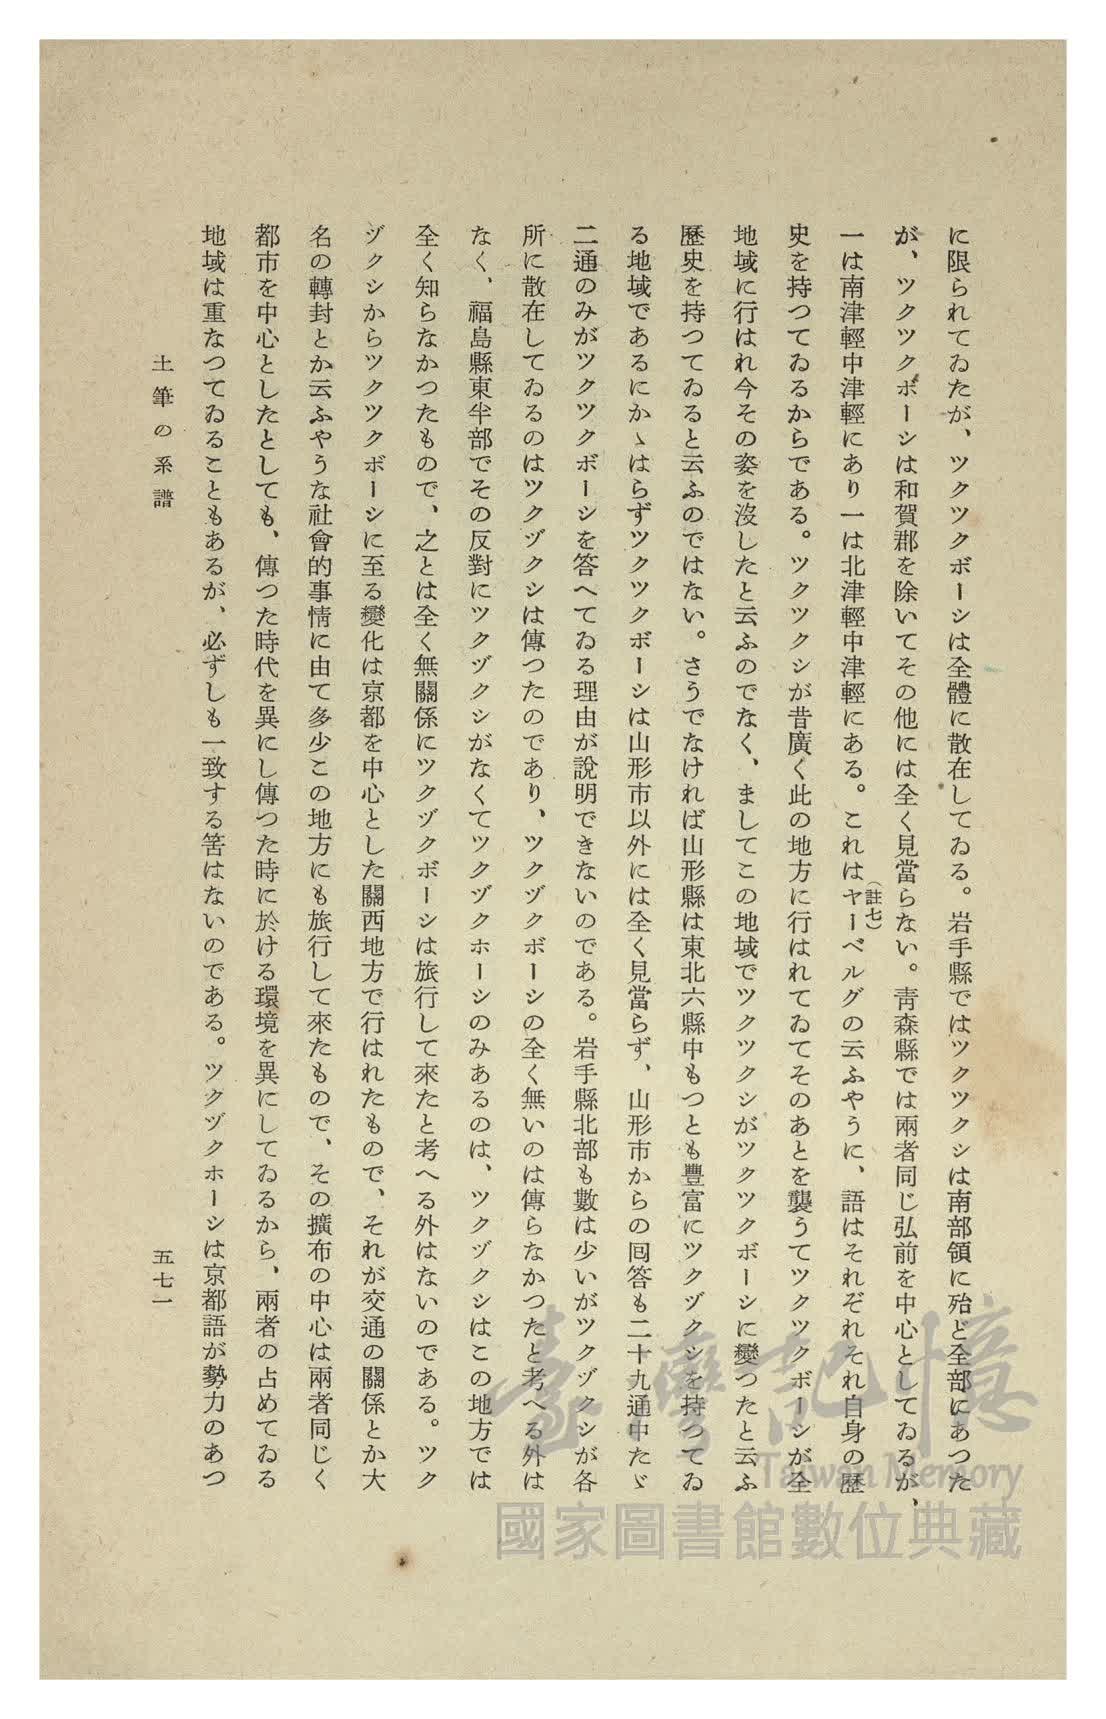 に限られてゐたが、ツクツクボーシは全體に散在してゐる。岩手縣ではツクツクシは南部領に殆ど全部にあつた
が、ツクツクボーシは和賀郡を除いてその他には全く見當らない。靑森縣では兩者同じ弘前を中心としてゐるが、
一は南津輕中津輕にあり一は北津輕中津輕にある。これはヤーベルグの云ふやうに、語はそれぞれそれ自身の歷
(註七)
史を持つてゐるからである。ツクツクシが昔廣く此の地方に行はれてゐてそのあとを襲うてツクツクボーシが全
地域に行はれ今その姿を沒したと云ふのでなく、ましてこの地域でツクツクシがツクツクボーシに變つたと云ふ
歷史を持つてゐると云ふのではない。さうでなければ山形縣は東北六縣中もつとも豐富にツクヅクシを持つてゐ
る地域であるにかゝはらずツクツクボーシは山形市以外には全く見當らず、山形市からの囘答も二十九通中たゞ
二通のみがツクツクボーシを答へてゐる理由が說明できないのである。岩手縣北部も數は少いがツクヅクシが各
所に散在してゐるのはツクヅクシは傳つたのであり、ツクヅクボーシの全く無いのは傳らなかつたと考へる外は
なく、福島縣東半部でその反對にツクヅクシがなくてツクヅクホーシのみあるのは、ツクヅクシはこの地方では
全く知らなかつたもので、之とは全く無關係にツクヅクボーシは旅行して來たと考へる外はないのである。ツク
ヅクシからツクツクボーシに至る變化は京都を中心とした關西地方で行はれたもので、それが交通の關係とか大
名の轉封とか云ふやうな社會的事情に由て多少この地方にも旅行して來たもので、その擴布の中心は兩者同じく
都市を中心としたとしても、傳つた時代を異にし傳つた時に於ける環境を異にしてゐるから、兩者の占めてゐる
地域は重なつてゐることもあるが、必ずしも一致する筈はないのである。ツクヅクホーシは京都語が勢力のあつ
土筆の系譜
五七一
臺灣記憶
Taiwan Memory
國家圖書館數位典藏